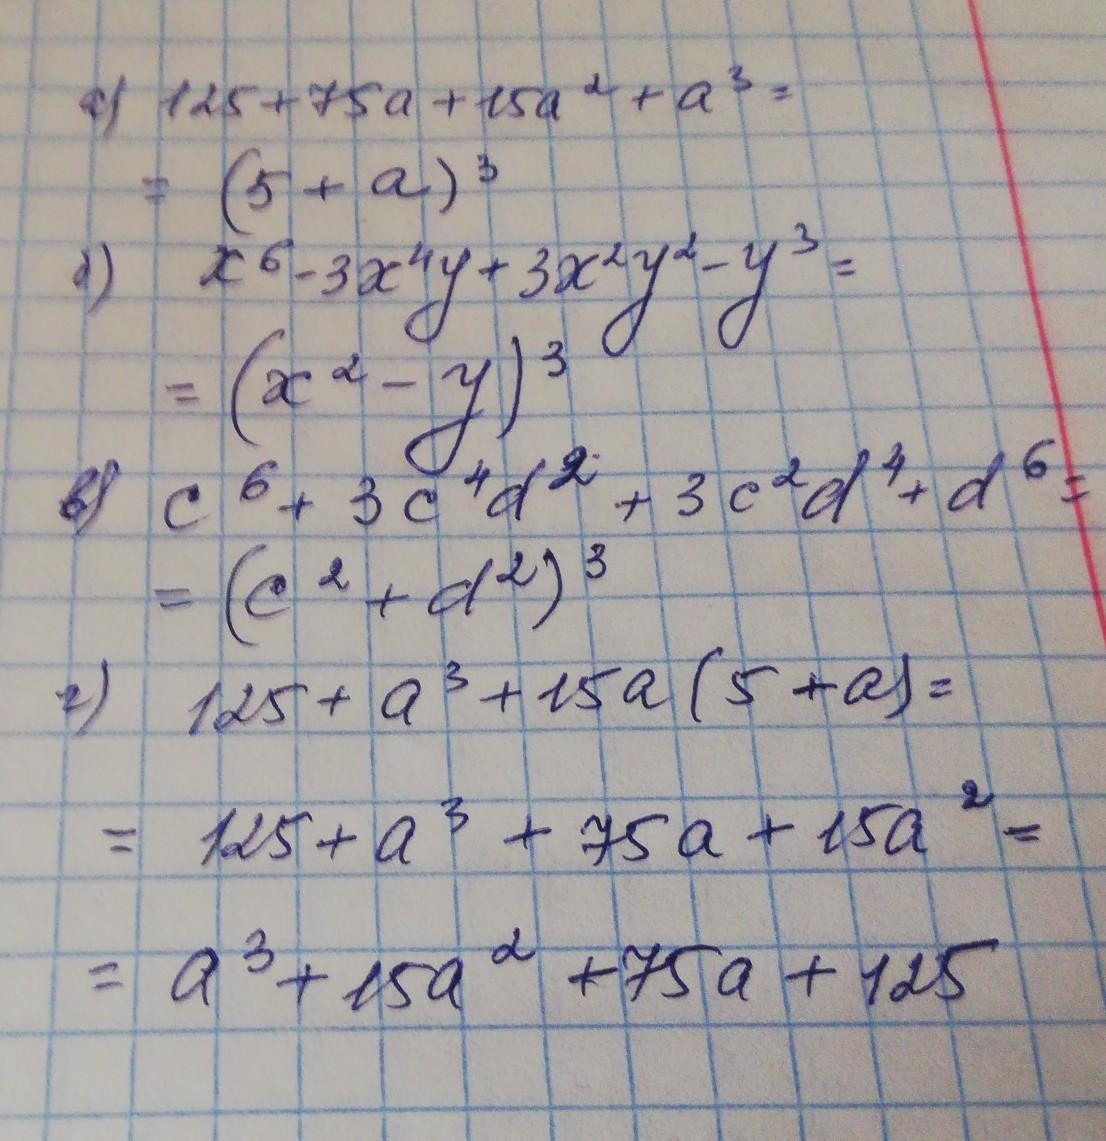 а) 125+75a+15a²+a³=
= (5+a)³
б) x⁶-3x⁴y+3x²y²-y³=
= (x²-y)³
в) c⁶+3c⁴d²+3c²d⁴+d⁶=
= (c²+d²)³
г) 125+a³+15a(5+a)=
= 125+a³+75a+15a²=
= a³+15a²+75a+125